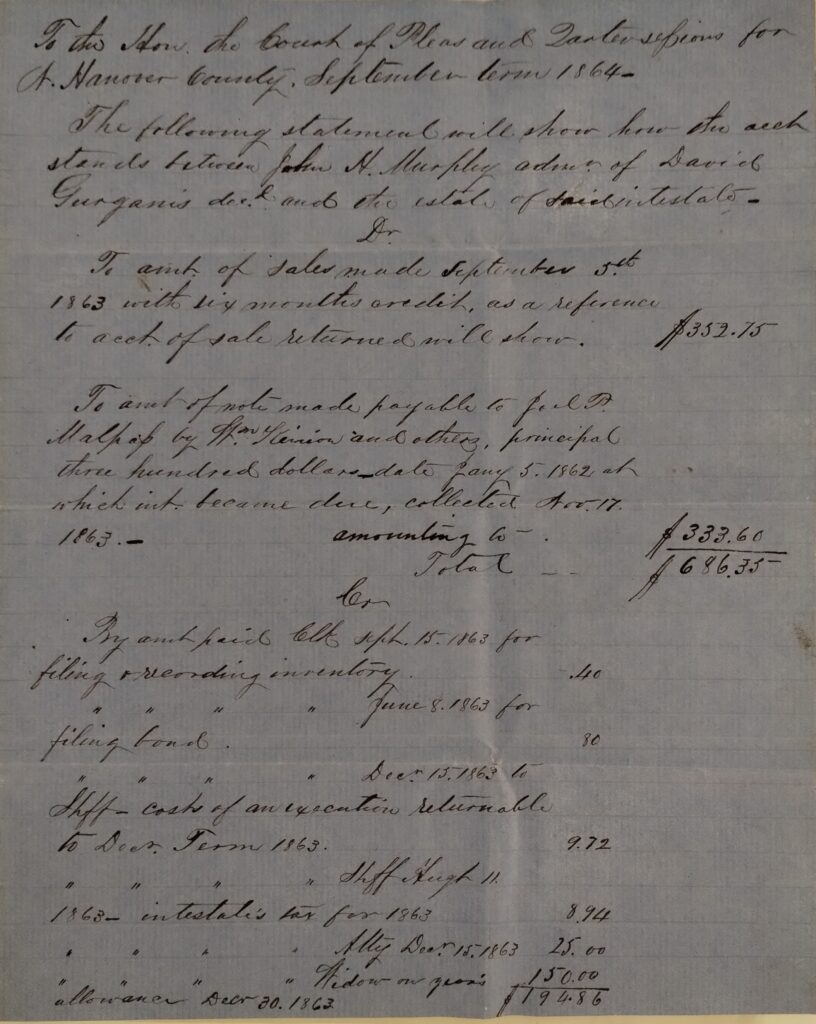 To the Hon. the Court of Pleas and Quarter sessions for
N. Hanover County. September term 1864-
The following statement will show how the acct
stands between John H. Murphy admr. of David
Gurganis decd. and the estate of said intestate-
Dr.
To amt. of sales made September 5th
1863 with six months credit, as a reference
to acct. of sale returned will show. $352.75
To amt of note made payable to Joel F.
Malpass by Wm Kinion and others, principal
three hundred dollars- date Jany 5. 1862 at
which int. became due, collected Nov. 17.
1863.- amounting to - . $333.60
Total -- $686.35
Cr
By amt paid Clk Sept. 15. 1863 for
filing & recording inventory. .40
" " " " June 8. 1863 for
filing bond. 80
" " " " Decr. 15. 1863 to
Shff- costs of an execution returnable
to Decr. Term 1863. 9.72
" " " " Shff 11.
1863- intestate's tax for 1863 8.94
" " " " Atty Decr. 15. 1863 25.00
" " " " Widow on year's 150.00
allowance Decr 30. 1863 $194.86